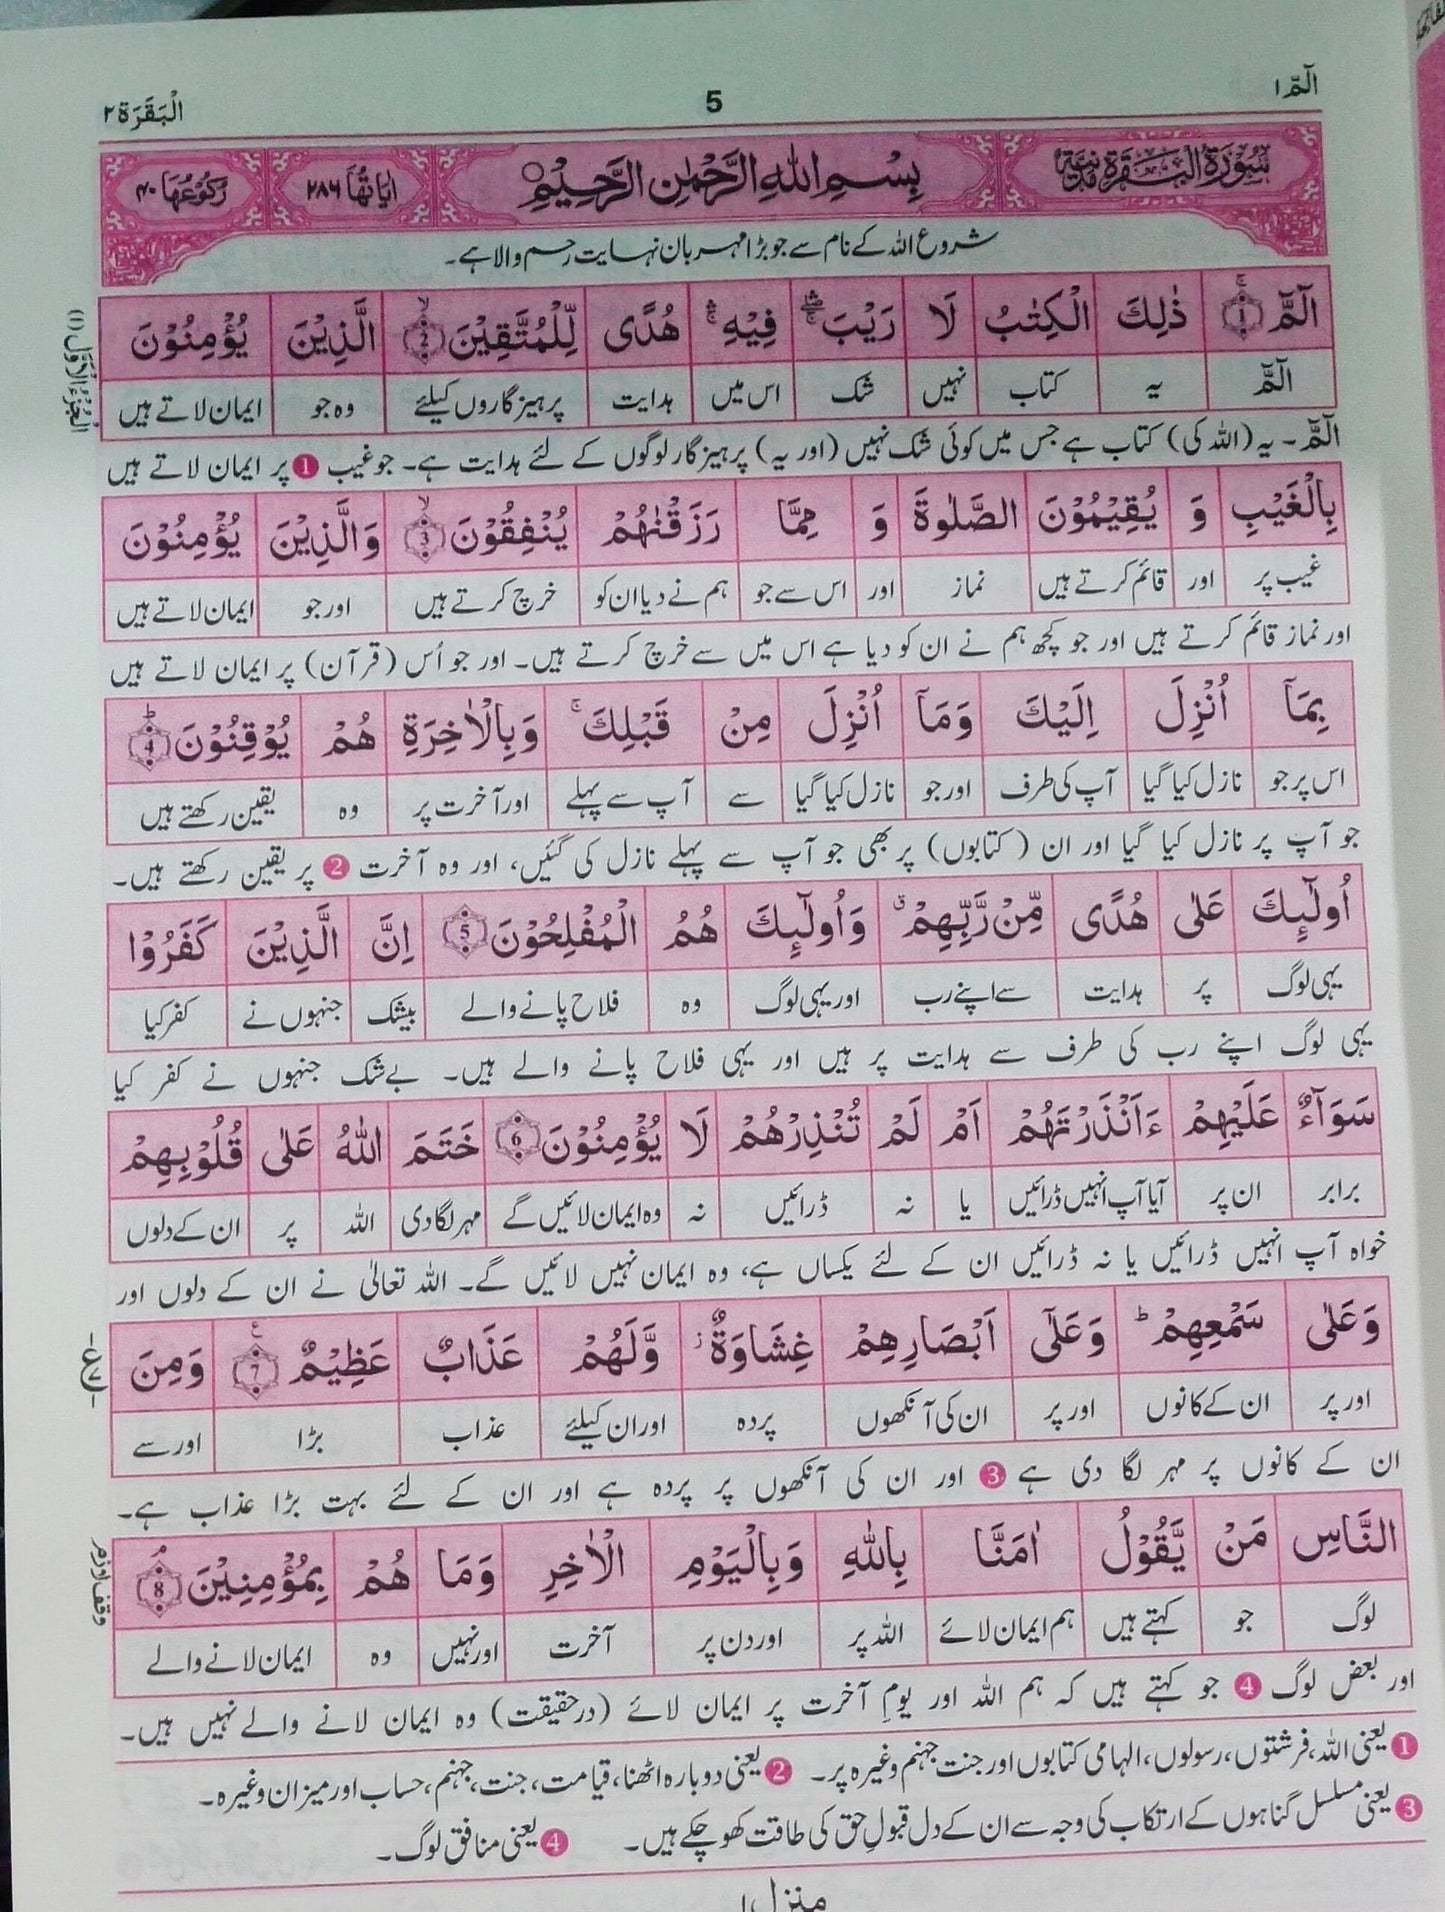 الٓمّٓ ۱
5
اَلْبَقَرَة ۲
سُوْرَةُ الْبَقَرَةِ مَدَنِيَّةٌ
بِسْمِ اللّٰهِ الرَّحْمٰنِ الرَّحِيْمِ
اٰيَاتُهَا ۲۸۶
رُكُوْعُهَا ۴۰
شروع اللہ کے نام سے جو بڑا مہربان نہایت رحم والا ہے۔
الٓمّٓ 1 ذٰلِكَ الْكِتٰبُ لَا رَيْبَ فِيْهِ هُدًى لِّلْمُتَّقِيْنَ 2 الَّذِيْنَ يُؤْمِنُوْنَ
الٓمّٓ یہ کتاب نہیں شک اس میں ہدایت پرہیزگاروں کیلئے وہ جو ایمان لاتے ہیں
الٓمّٓ۔ یہ (اللہ کی) کتاب ہے جس میں کوئی شک نہیں (اور یہ) پرہیزگار لوگوں کے لئے ہدایت ہے۔ جو غیب 1 پر ایمان لاتے ہیں
بِالْغَيْبِ وَ يُقِيْمُوْنَ الصَّلٰوةَ وَ مِمَّا رَزَقْنٰهُمْ يُنْفِقُوْنَ 3 وَالَّذِيْنَ يُؤْمِنُوْنَ
غیب پر اور قائم کرتے ہیں نماز اور اس سے جو ہم نے دیا ان کو خرچ کرتے ہیں اور جو ایمان لاتے ہیں
اور نماز قائم کرتے ہیں اور جو کچھ ہم نے ان کو دیا ہے اس میں سے خرچ کرتے ہیں۔ اور جو اُس (قرآن) پر ایمان لاتے ہیں
بِمَآ اُنْزِلَ اِلَيْكَ وَمَآ اُنْزِلَ مِنْ قَبْلِكَ وَبِالْاٰخِرَةِ هُمْ يُوْقِنُوْنَ 4
اس پر جو نازل کیا گیا آپ کی طرف اور جو نازل کیا گیا سے آپ سے پہلے اور آخرت پر وہ یقین رکھتے ہیں
جو آپ پر نازل کیا گیا اور ان (کتابوں) پر بھی جو آپ سے پہلے نازل کی گئیں، اور وہ آخرت 2 پر یقین رکھتے ہیں۔
اُولٰٓئِكَ عَلٰى هُدًى مِّنْ رَّبِّهِمْ وَاُولٰٓئِكَ هُمُ الْمُفْلِحُوْنَ 5 اِنَّ الَّذِيْنَ كَفَرُوْا
یہی لوگ پر ہدایت سے اپنے رب اور یہی لوگ وہ فلاح پانے والے بیشک جنہوں نے کفر کیا
یہی لوگ اپنے رب کی طرف سے ہدایت پر ہیں اور یہی فلاح پانے والے ہیں۔ بے شک جنہوں نے کفر کیا
سَوَآءٌ عَلَيْهِمْ ءَاَنْذَرْتَهُمْ اَمْ لَمْ تُنْذِرْهُمْ لَا يُؤْمِنُوْنَ 6 خَتَمَ اللّٰهُ عَلٰى قُلُوْبِهِمْ
برابر ان پر آیا آپ انہیں ڈرائیں یا نہ ڈرائیں نہ وہ ایمان لائیں گے مہر لگا دی اللہ پر ان کے دلوں
خواہ آپ انہیں ڈرائیں یا نہ ڈرائیں ان کے لئے یکساں ہے، وہ ایمان نہیں لائیں گے۔ اللہ تعالیٰ نے ان کے دلوں اور
وَعَلٰى سَمْعِهِمْ وَعَلٰٓى اَبْصَارِهِمْ غِشَاوَةٌ وَّلَهُمْ عَذَابٌ عَظِيْمٌ 7 وَمِنَ
اور پر ان کے کانوں اور پر ان کی آنکھوں پردہ اور ان کیلئے عذاب بڑا اور سے
ان کے کانوں پر مہر لگا دی ہے 3 اور ان کی آنکھوں پر پردہ ہے اور ان کے لئے بہت بڑا عذاب ہے۔
النَّاسِ مَنْ يَّقُوْلُ اٰمَنَّا بِاللّٰهِ وَبِالْيَوْمِ الْاٰخِرِ وَمَا هُمْ بِمُؤْمِنِيْنَ 8
لوگ جو کہتے ہیں ہم ایمان لائے اللہ پر اور دن پر آخرت اور نہیں وہ ایمان لانے والے
اور بعض لوگ 4 جو کہتے ہیں کہ ہم اللہ اور یومِ آخرت پر ایمان لائے (درحقیقت) وہ ایمان لانے والے نہیں ہیں۔
1 یعنی اللہ، فرشتوں، رسولوں، الہامی کتابوں اور جنت جہنم وغیرہ پر۔ 2 یعنی دوبارہ اٹھنا، قیامت، جنت، جہنم، حساب اور میزان وغیرہ۔
3 یعنی مسلسل گناہوں کے ارتکاب کی وجہ سے ان کے دل قبولِ حق کی طاقت کھو چکے ہیں۔ 4 یعنی منافق لوگ۔
منزل ۱
اَلْجُزْءُ الْاَوَّلُ (۱)